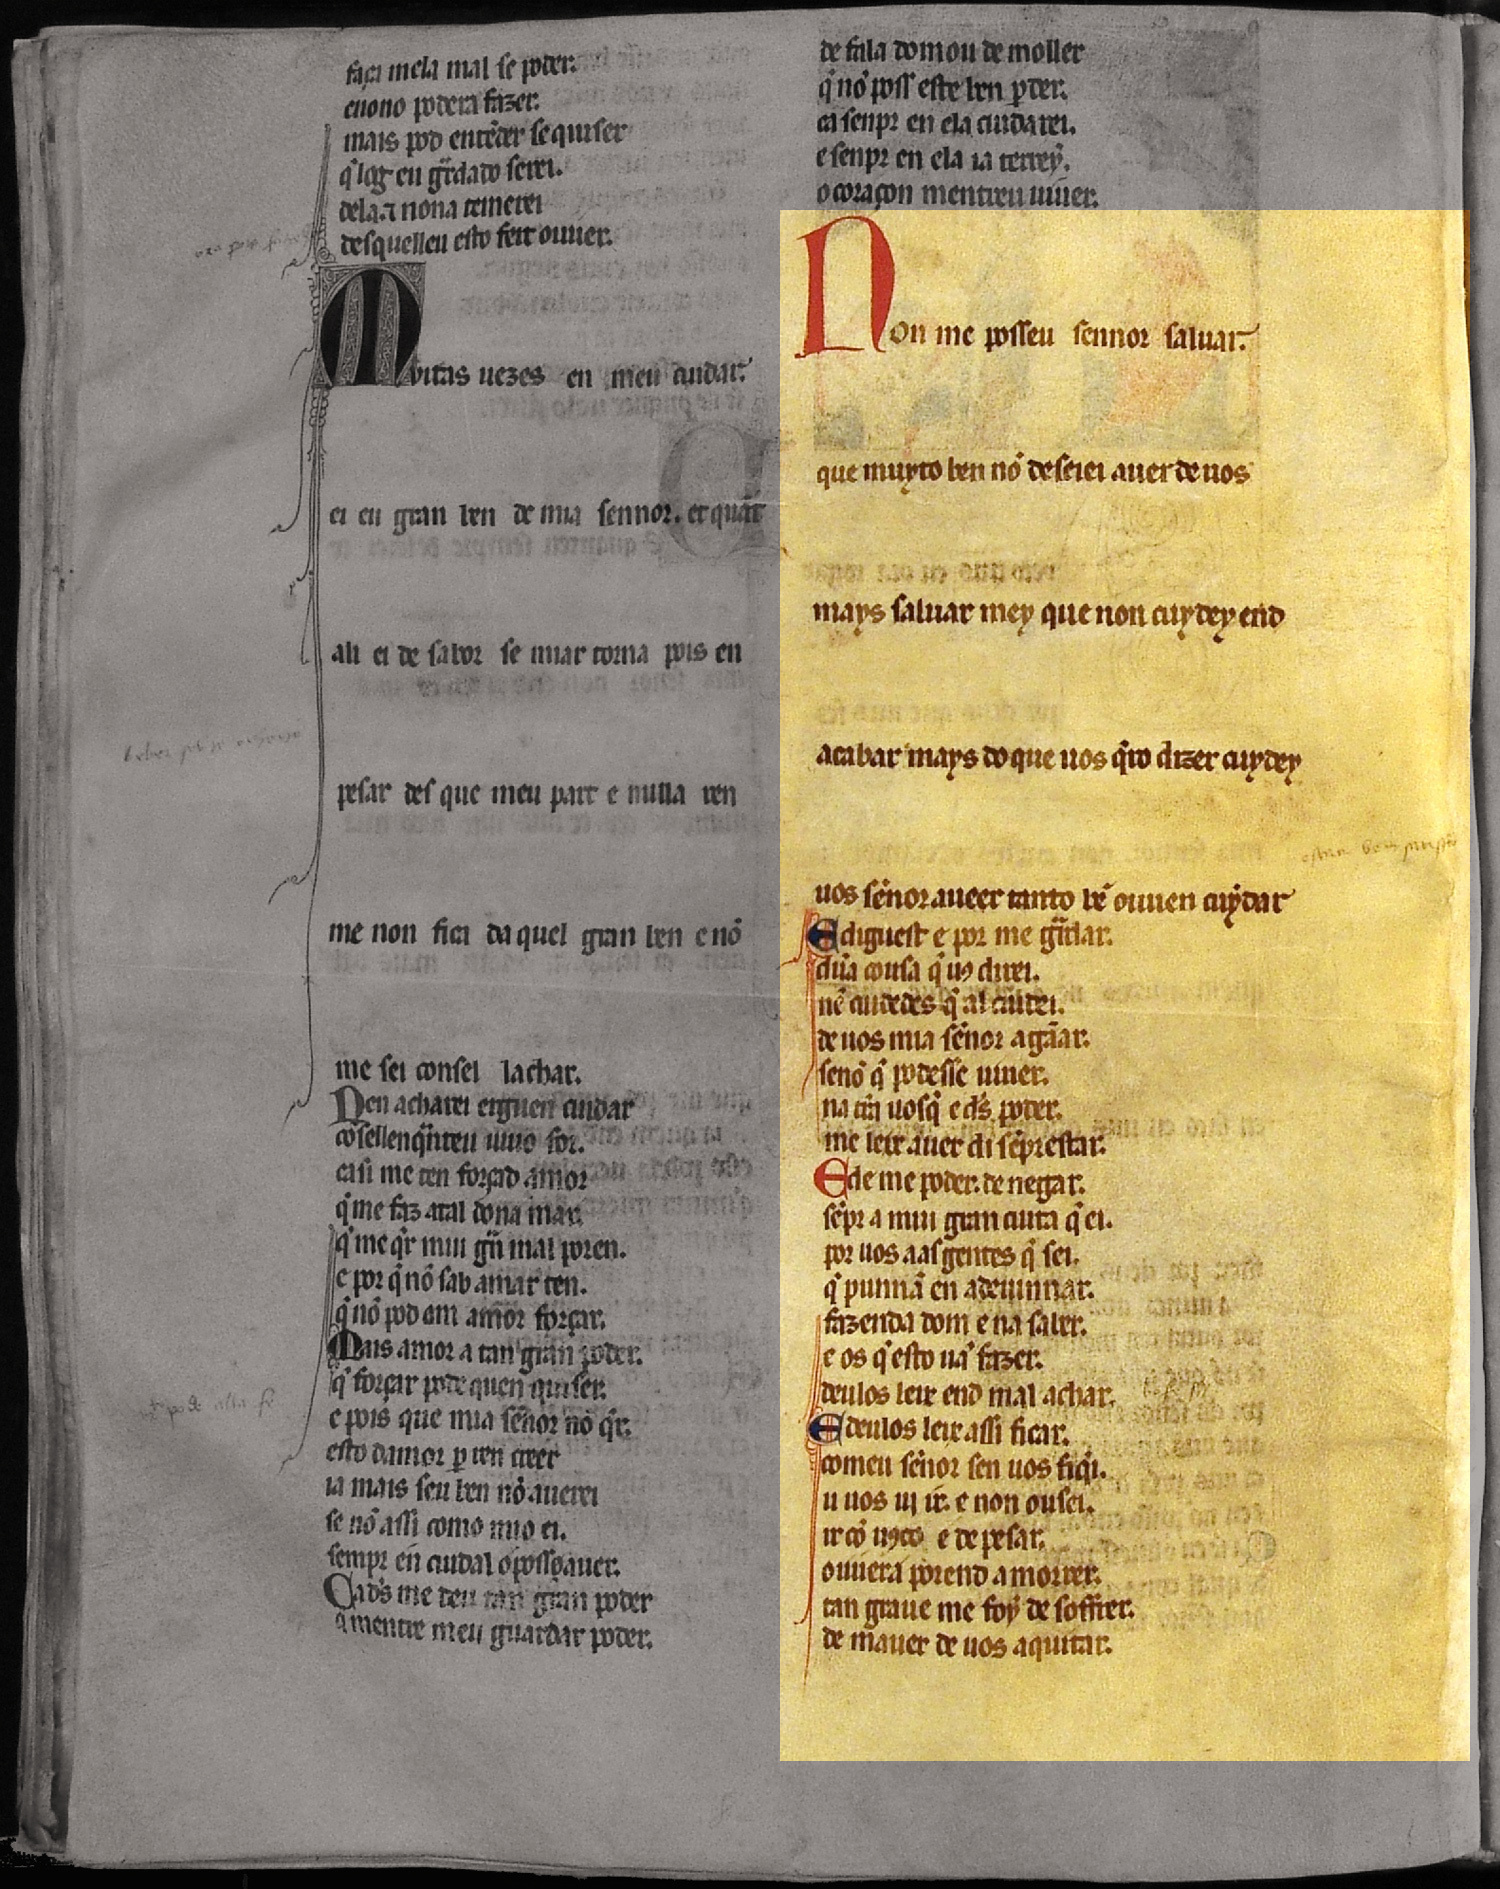 faça mela mal se poder.
enono podera fazer.
mais pod entẽder se quiser
q̃ log eu gr̃dado serei.
dela. ⁊ nona temerei
desquelleu esto feit ouuer.
Muitas uezes en meu cuidar.
ei eu gran ben de mia sennor. et quãt
ali ei de sabor se miar torna pois en
pesar des que meu part e nulla ren
me non fica daquel gran ben e nõ
me sei consel lachar.
Nen acharei erguen cuidar
cõsellenq̃nteu uiuo for.
ca si me ten forçad amor
q̃ me faz atal dona mar.
q̃ me q̃r mui gñ mal poren.
e por q̃ nõ sab amar ren.
q̃ nõ pod om amõr forçar.
Mais amor a tan gran poder.
q̃ forçar pode quen quiser.
e pois que mia señor nõ q̃r.
esto damor ꝑ ren creer
ia mais seu ben nõ auerei
se nõ assi como mio ei.
sempr en cuidal o posso auer.
Cads̃ me deu tan gran poder
q̃ mentre meu guardar poder.
de fala dom ou de moller
q̃ nõ poss este ben ꝑder.
ca senpr en ela cuidarei.
e senpr en ela ia terrey.
o coraçon mentreu uiuer.
Non me posseu sennor saluar.
que muyto ben nõ deseiei auer de uos
mays saluar mey que non cuydey end
acabar mays do que uos q̃ro dizer cuydey
uos sẽnor aueer tanto bẽ ouuen cuydar
E diguest e por me gr̃dar.
dũa cousa q̃ uꝯ direi.
nẽ cuidedes q̃ al cuidei.
de uos mia sẽnor agãar.
senõ q̃ podesse uiuer.
na trr̃a uosq̃ e ds̃ poder.
me leix auer di sẽpr estar.
E de me poder. de negar.
sẽpr a mui gran cuita q̃ ei.
por uos aas gentes q̃ sei.
q̃ punnã en adeuinnar.
fazenda dom e na saber.
e os q̃ esto uã fazer.
deulos leix end mal achar.
E deulos leix assi ficar.
comeu sẽnor sen uos fiq̃i.
u uos ui ir. e non ousei.
ir cõ uꝯco e de pesar.
ouuera porend a morrer.
tan graue me foy de soffrer.
de mauer de uos aquitar.